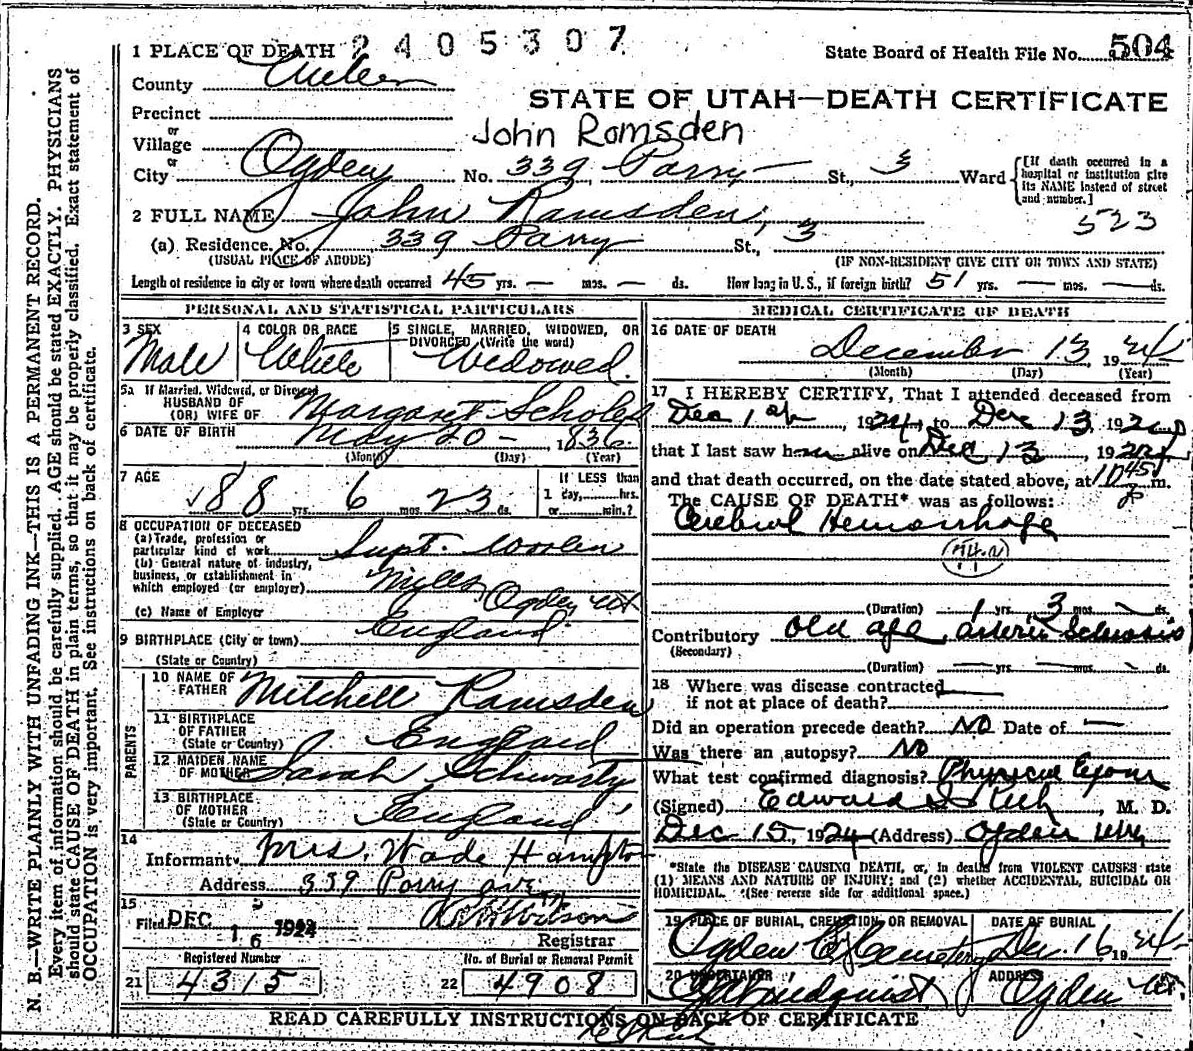 2405307
1 PLACE OF DEATH
State Board of Health File No. 504
County Weber
STATE OF UTAH—DEATH CERTIFICATE
Precinct
or
Village
John Ramsden
or
City Ogden No. 339 Parry St., 3 Ward
[If death occurred in a hospital or institution give its NAME instead of street and number.]
2 FULL NAME John Ramsden,
523
(a) Residence. No. 339 Parry St., 3
(USUAL PLACE OF ABODE) (IF NON-RESIDENT GIVE CITY OR TOWN AND STATE)
Length of residence in city or town where death occurred 45 yrs. — mos. — ds. How long in U. S., if foreign birth? 51 yrs. — mos. — ds.
PERSONAL AND STATISTICAL PARTICULARS
3 SEX Male
4 COLOR OR RACE White
5 SINGLE, MARRIED, WIDOWED, OR DIVORCED (Write the word) Widowed.
5a If Married, Widowed, or Divorced
HUSBAND OF
(OR) WIFE OF Margaret Scholes
6 DATE OF BIRTH May 20 - 1836
(Month) (Day) (Year)
7 AGE 88 yrs. 6 mos. 23 ds.
If LESS than 1 day,......hrs. or......min.?
8 OCCUPATION OF DECEASED
(a) Trade, profession or particular kind of work Supt. Woolen
(b) General nature of industry, business, or establishment in which employed (or employer) Mills, Ogden Ut
(c) Name of Employer
9 BIRTHPLACE (City or town) England
(State or Country)
PARENTS
10 NAME OF FATHER Mitchell Ramsden
11 BIRTHPLACE OF FATHER England
(State or Country)
12 MAIDEN NAME OF MOTHER Sarah
13 BIRTHPLACE OF MOTHER England
(State or Country)
14
Informant Mrs. Wade Hampton
Address 339 Parry ave
15
Filed DEC 16 1924 Wilson
Registrar
Registered Number
21 4315
No. of Burial or Removal Permit
22 4908
MEDICAL CERTIFICATE OF DEATH
16 DATE OF DEATH
December 13 1924
(Month) (Day) (Year)
17 I HEREBY CERTIFY, That I attended deceased from
Dec 1st, 1924, to Dec 13, 1924
that I last saw him alive on Dec 13, 1924
and that death occurred, on the date stated above, at 10 45 p m.
The CAUSE OF DEATH* was as follows:
Cerebral Hemorrhage
(74.a)
(Duration) 1 yrs. 3 mos. — ds.
Contributory Old age, arterio Sclerosis
(Secondary)
(Duration) — yrs. — mos. — ds.
18 Where was disease contracted
if not at place of death?
Did an operation precede death? NO Date of —
Was there an autopsy? NO
What test confirmed diagnosis? Physical Exam
(Signed) Edward I Rich, M. D.
Dec 15, 1924 (Address) Ogden Utah
*State the DISEASE CAUSING DEATH, or, in deaths from VIOLENT CAUSES state
(1) MEANS AND NATURE OF INJURY; and (2) whether ACCIDENTAL, SUICIDAL OR
HOMICIDAL. (See reverse side for additional space.)
19 PLACE OF BURIAL, CREMATION, OR REMOVAL
Ogden City Cemetery
DATE OF BURIAL
Dec. 16 1924
20 UNDERTAKER
Lindquist
ADDRESS
Ogden Ut.
READ CAREFULLY INSTRUCTIONS ON BACK OF CERTIFICATE
N. B.—WRITE PLAINLY WITH UNFADING INK—THIS IS A PERMANENT RECORD.
Every item of information should be carefully supplied. AGE should be stated EXACTLY. PHYSICIANS
should state CAUSE OF DEATH in plain terms, so that it may be properly classified. Exact statement of
OCCUPATION is very important. See instructions on back of certificate.